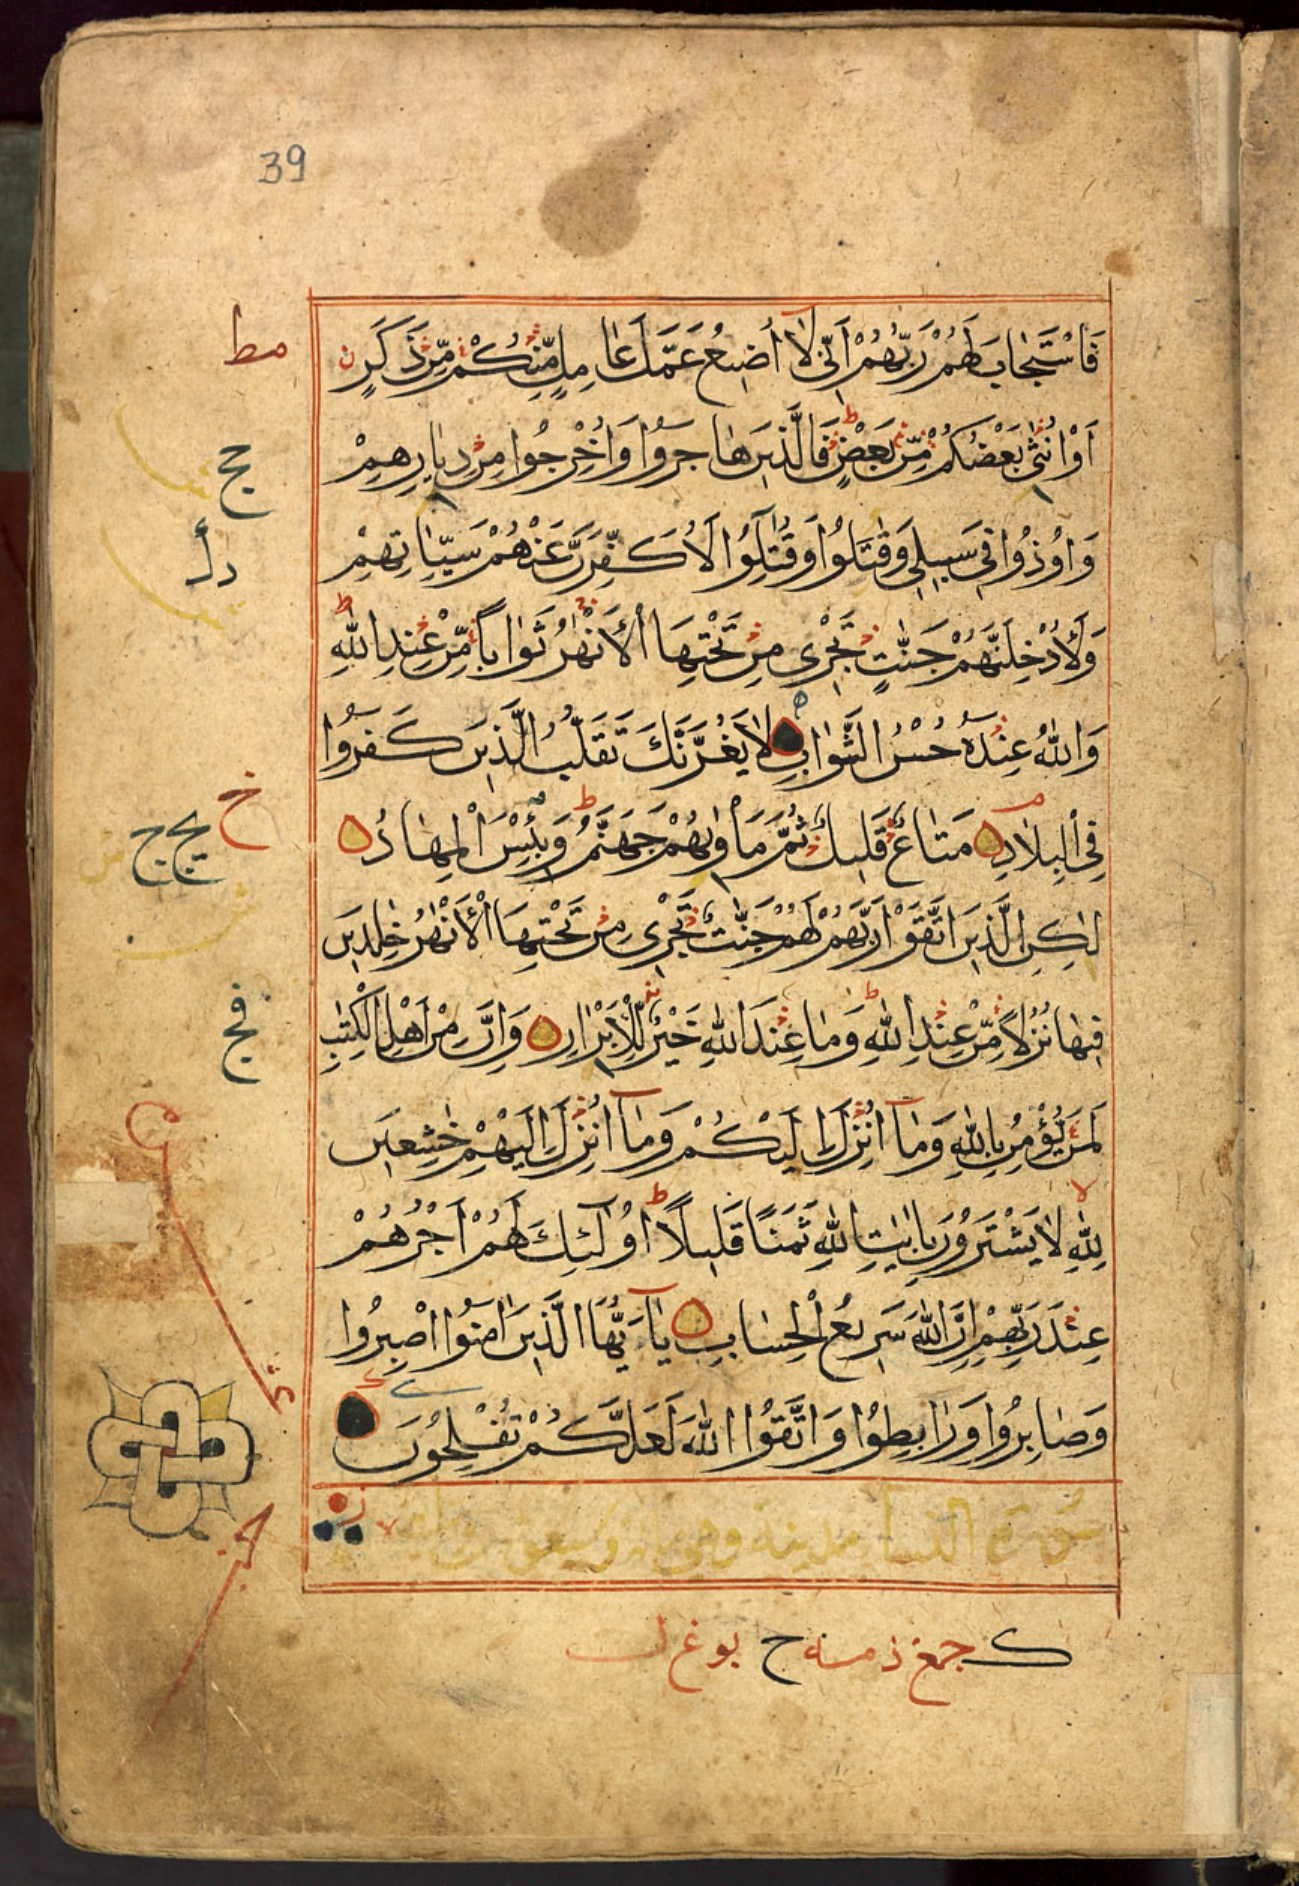 39
فَاسْتَجَابَ لَهُمْ رَبُّهُمْ اَنِّى لَا اُضِيعُ عَمَلَ عَامِلٍ مِّنْكُمْ مِّنْ ذَكَرٍ
اَوْ اُنْثٰى بَعْضُكُمْ مِّنْ بَعْضٍ فَالَّذِينَ هَاجَرُوا وَاُخْرِجُوا مِنْ دِيَارِهِمْ
وَاُوذُوا فِى سَبِيلِى وَقٰتَلُوا وَقُتِلُوا لَاُكَفِّرَنَّ عَنْهُمْ سَيِّاٰتِهِمْ
وَلَاُدْخِلَنَّهُمْ جَنّٰتٍ تَجْرِى مِنْ تَحْتِهَا الْاَنْهٰرُ ثَوَابًا مِّنْ عِنْدِ اللّٰهِ
وَاللّٰهُ عِنْدَهٗ حُسْنُ الثَّوَابِ لَا يَغُرَّنَّكَ تَقَلُّبُ الَّذِينَ كَفَرُوا
فِى الْبِلَادِ مَتَاعٌ قَلِيلٌ ثُمَّ مَاْوٰيهُمْ جَهَنَّمُ وَبِئْسَ الْمِهَادُ
لٰكِنِ الَّذِينَ اتَّقَوْا رَبَّهُمْ لَهُمْ جَنّٰتٌ تَجْرِى مِنْ تَحْتِهَا الْاَنْهٰرُ خٰلِدِينَ
فِيهَا نُزُلًا مِّنْ عِنْدِ اللّٰهِ وَمَا عِنْدَ اللّٰهِ خَيْرٌ لِّلْاَبْرَارِ وَاِنَّ مِنْ اَهْلِ الْكِتٰبِ
لَمَنْ يُّؤْمِنُ بِاللّٰهِ وَمَآ اُنْزِلَ اِلَيْكُمْ وَمَآ اُنْزِلَ اِلَيْهِمْ خٰشِعِينَ
لِلّٰهِ لَا يَشْتَرُونَ بِاٰيٰتِ اللّٰهِ ثَمَنًا قَلِيلًا اُولٰٓئِكَ لَهُمْ اَجْرُهُمْ
عِنْدَ رَبِّهِمْ اِنَّ اللّٰهَ سَرِيعُ الْحِسَابِ يَآ اَيُّهَا الَّذِينَ اٰمَنُوا اصْبِرُوا
وَصَابِرُوا وَرَابِطُوا وَاتَّقُوا اللّٰهَ لَعَلَّكُمْ تُفْلِحُونَ
سورة النسا مدنية وهى مائة وسبعون
مط
ج